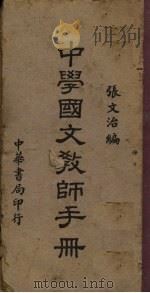 張文治編
中學國文教師手冊
中華書局印行
www.mtoou.info